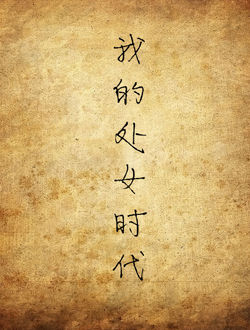 我的处女时代